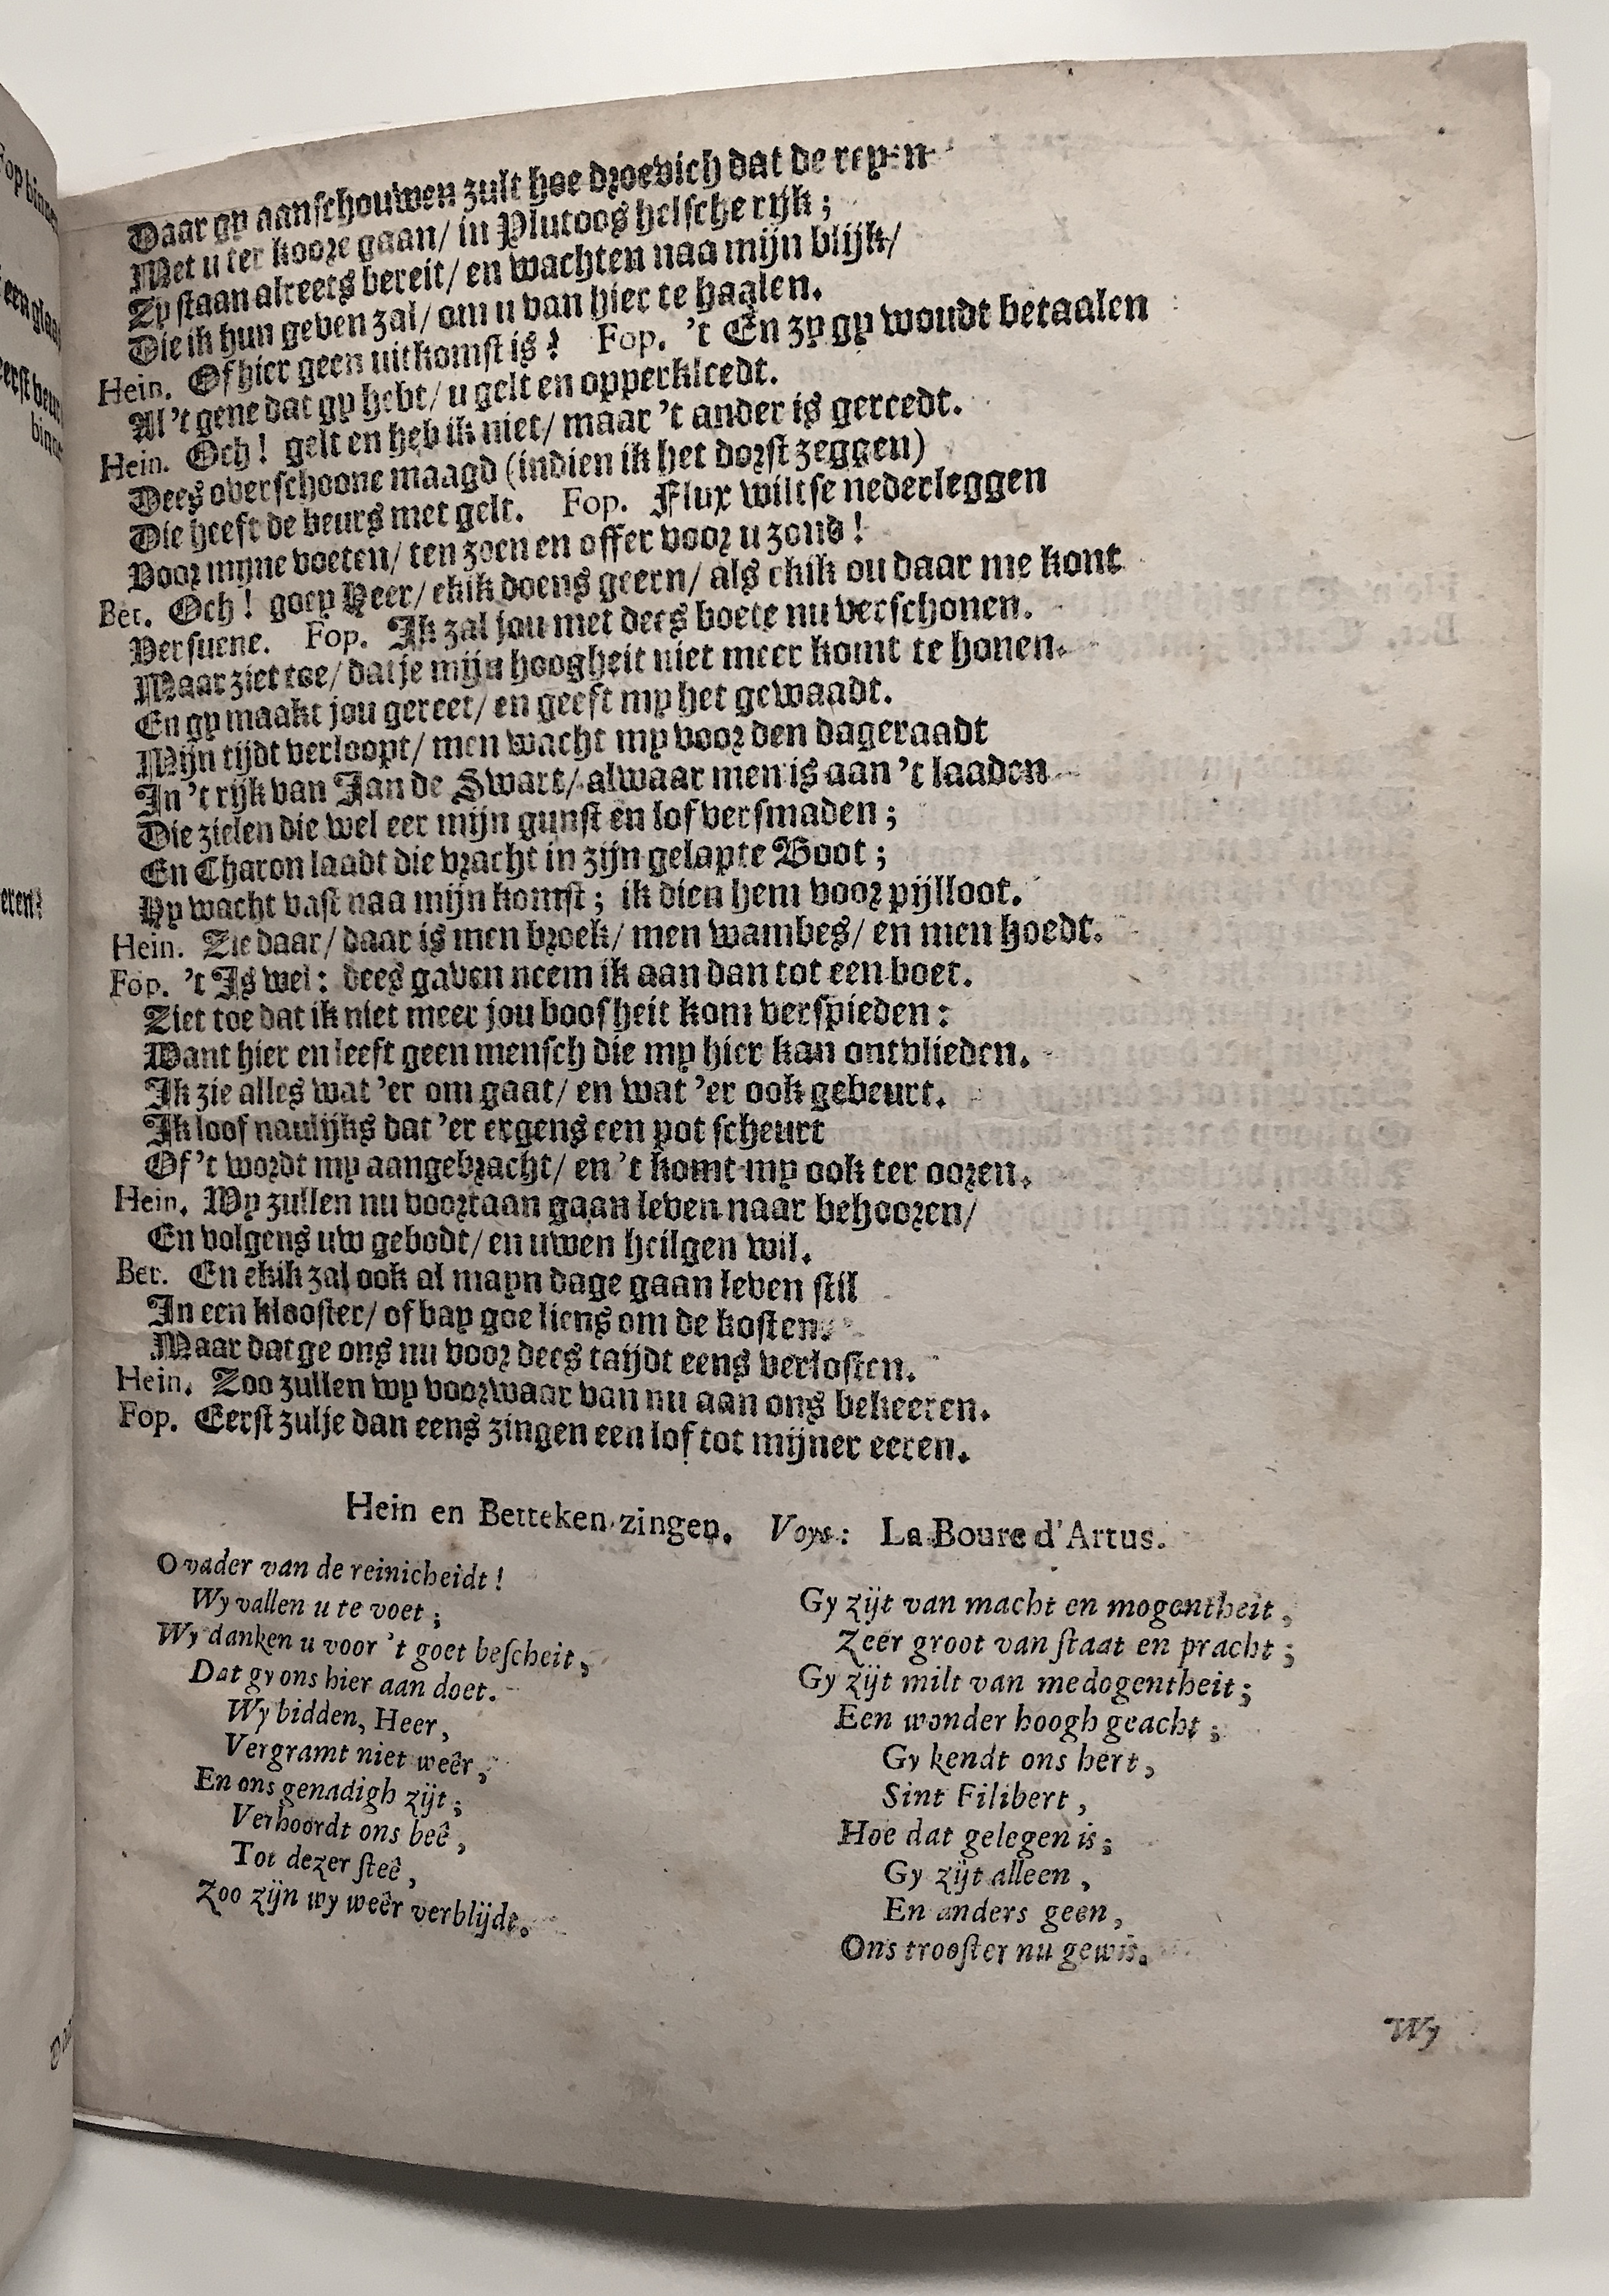 Daar gy aanschouwen zult hoe droevich dat de reyen
Met u ter koore gaan/ in Plutoos helsche rijk;
Zy staan alreets bereit/ en wachten naa mijn blijk/
Die ik hun geven zal/ om u van hier te haalen.
Hein. Of hier geen uitkomst is? Fop. 't En zy gy woudt betaalen
Al 't gene dat gy hebt/ u gelt en opperkleedt.
Hein. Och! gelt en heb ik niet/ maar 't ander is gereedt.
Dees overschoone maagd (indien ik het dorst zeggen)
Die heeft de beurs met gelt. Fop. Flux wiltse nederleggen
Voor myne voeten/ ten zoen en offer voor u zond!
Bet. Och! goey Heer/ ekik doens geern/ als ekik ou daar me kont
Versuene. Fop. Ik zal jou met dees boete nu verschonen.
Maar ziet toe/ dat je mijn hoogheit niet meer komt te honen.
En gy maakt jou gereet/ en geeft my het gewaadt.
Mijn tijdt verloopt/ men wacht my voor den dageraadt
In 't rijk van Jan de Swart/ alwaar men is aan 't laaden
Die zielen die wel eer mijn gunst en lof versmaden;
En Charon laadt die vracht in zijn gelapte Boot;
Hy wacht vast naa mijn komst; ik dien hem voor pijlloot.
Hein. Zie daar/ daar is men broek/ men wambes/ en men hoedt.
Fop. 't Is wel: dees gaven neem ik aan dan tot een boet.
Ziet toe dat ik niet meer jou boosheit kom verspieden:
Want hier en leeft geen mensch die my hier kan ontvlieden.
Ik zie alles wat 'er om gaat/ en wat 'er ook gebeurt.
Ik loof naulijks dat 'er ergens een pot scheurt
Of 't wordt my aangebracht/ en 't komt my ook ter ooren.
Hein. Wy zullen nu voortaan gaan leven naar behooren/
En volgens uw gebodt/ en uwen heilgen wil.
Bet. En ekik zal ook al mayn dage gaan leven stil
In een klooster/ of bay goe liens om de kosten.
Maar dat ge ons nu voor dees taijdt eens verlosten.
Hein. Zoo zullen wy voorwaar van nu aan ons bekeeren.
Fop. Eerst zulje dan eens zingen een lof tot mijner eeren.
Hein en Betteken zingen. Voys: La Boure d'Artus.
O vader van de reinicheidt!
Wy vallen u te voet;
Wy danken u voor 't goet bescheit,
Dat gy ons hier aan doet.
Wy bidden, Heer,
Vergramt niet weêr,
En ons genadigh zijt;
Verhoordt ons beê,
Tot dezer steê,
Zoo zijn wy weêr verblijdt.
Gy zijt van macht en mogentheit,
Zeer groot van staat en pracht;
Gy zijt milt van medogentheit;
Een wonder hoogh geacht;
Gy kendt ons hert,
Sint Filibert,
Hoe dat gelegen is;
Gy zijt alleen,
En anders geen,
Ons trooster nu gewis.
Wy